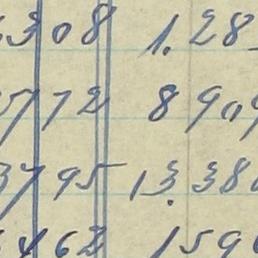 308 1.28
5772 890,9
3795 13.38
462 1590